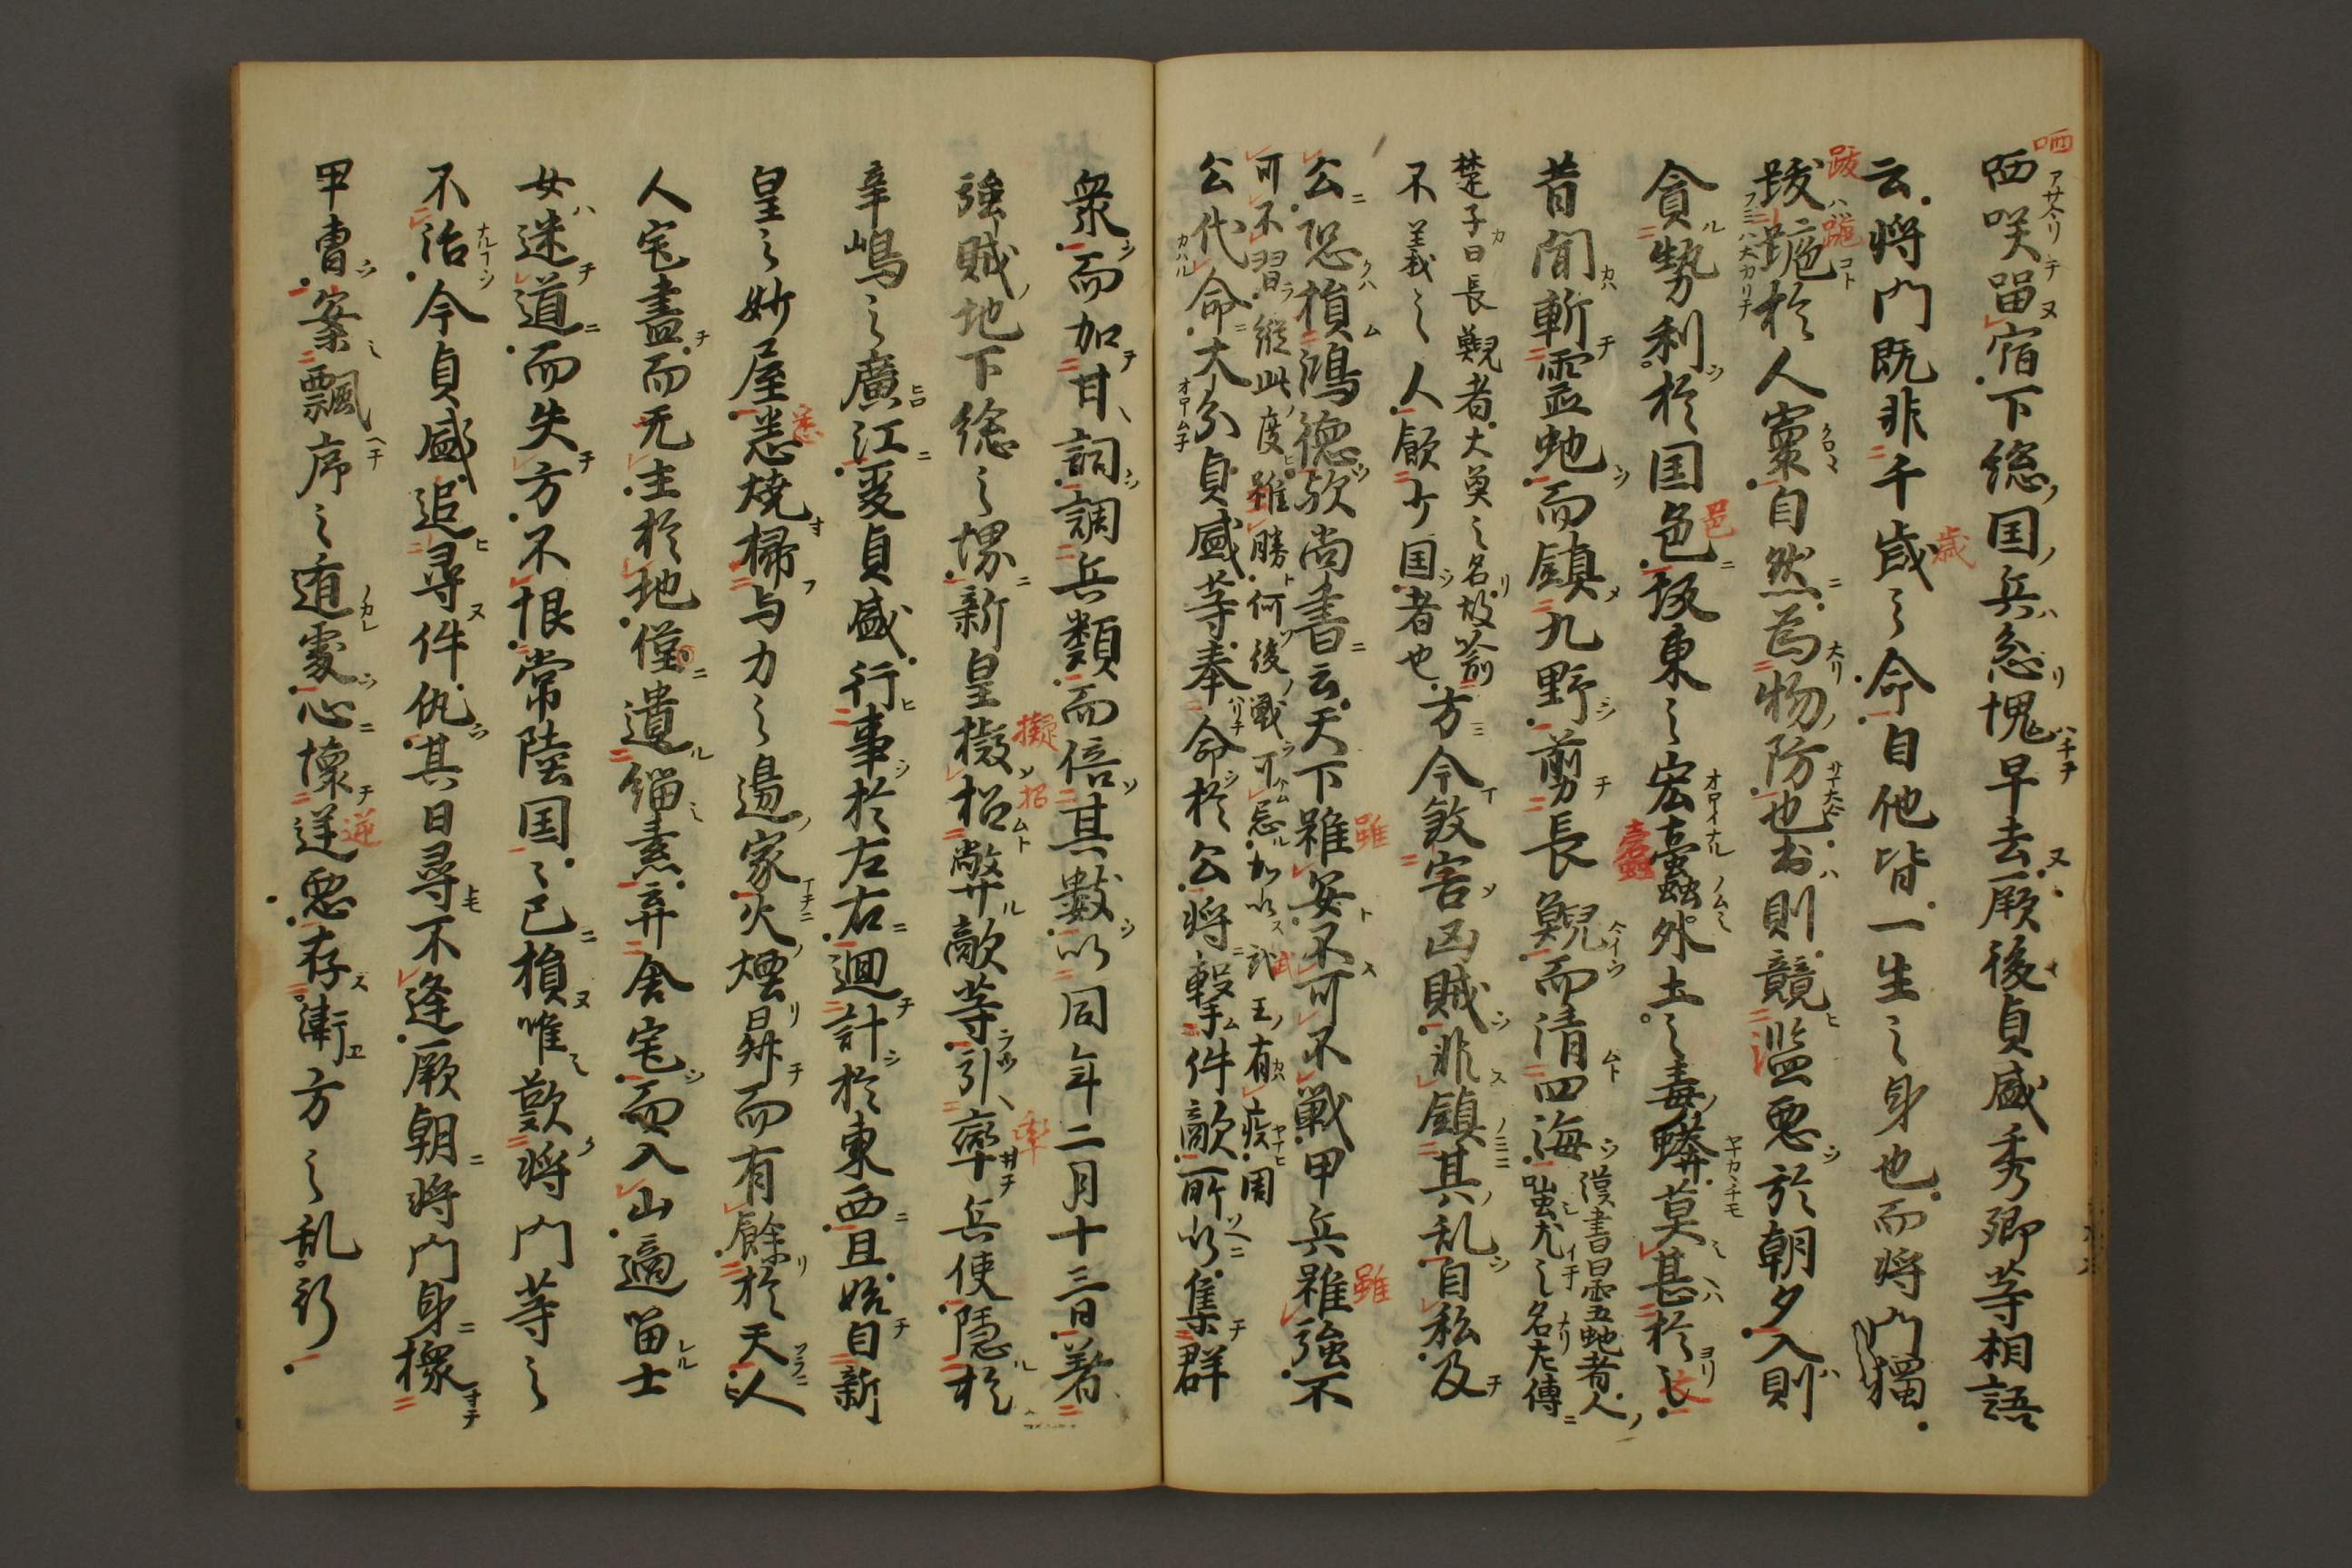 哂咲留宿下総国兵忩愧早去厥後貞盛秀郷等相語
云将門既非千歳之命自他皆一生之身也而将門獨
跋跪於人寰自然為物防也出則競濫悪於朝夕入則
貪勢利於国邑坂東之宏蠹外土之毒蟒莫甚於之
昔聞斬霊虵而鎮九野剪長鯢而清四海漢書曰霊虵者人
蚩尤之名左傳
楚子曰長鯢者大魚之名故喩
不義之人厭少国者也方今煞害凶賊非鎮其乱自私及
公恐損鴻徳歟尚書云天下雖安不可不戦甲兵雖強不
可不習縦此度雖勝何後戦可忘加以武王有疾周
公代命大分貞盛等奉命於公将撃件敵所以集群
衆而加甘詞調兵類而倍其數以同年二月十三日著
強賊地下総之堺新皇擬招弊敵等引率兵使隠於
辛嶋之廣江爰貞盛行事於左右廻計於東西且始自新
皇之妙屋悉焼掃与力之邊家火煙昇而有餘於天人
人宅盡而无主於地僅遺緇素弃舎宅而入山適留士
女迷道而失方不恨常陸国之已損唯歎将門等之
不治今貞盛追尋件仇其日尋不逢厥朝将門身擐
甲冑案飄序之遁處心懐逆悪存衛方之乱行